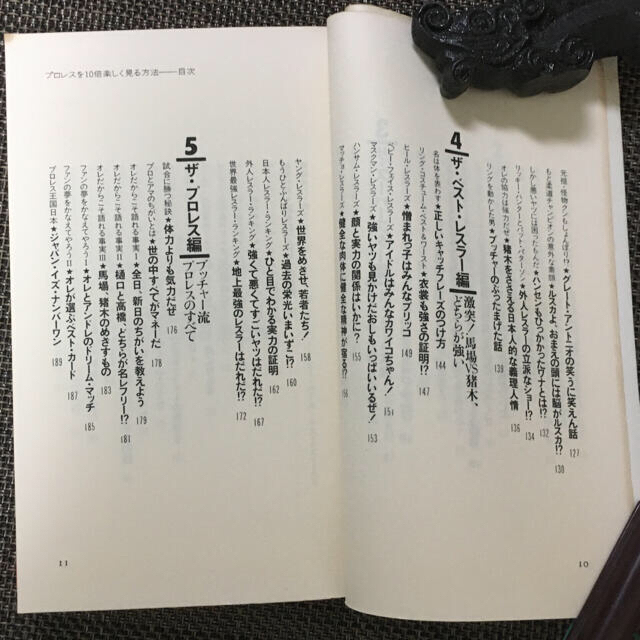 ★グレート・アントニオの笑うに笑えん話 127
もと柔道チャンピオンの意外な素顔★ルスカよ、おまえの頭には脳がルスカ!? 130
★ハンセンもひっかかったワナとは!? 132
★外人レスラーの立派なショー!? 134
オレの協力は強力だぜ★猪木をささえる日本人的な義理人情 136
★ブッチャーの 話 138
4 ザ・ベスト・レスラー編
激突!馬場vs猪木、
どちらが強い
名は体を表わす★正しいキャッチフレーズのつけ方 144
リング・コスチューム・ベスト&ワースト★衣装も強さの証明!? 147
ヒール・レスラーズ★憎まれっ子はみんなブリッコ 149
ベビー・フェイス・レスラーズ★アイドルはみんなカワイコちゃん! 151
マスクマン・レスラーズ★強いヤツも見かけだおしもいっぱいいるぜ! 153
ハンサム・レスラーズ★顔と実力の関係はいかに? 155
マッチョ・レスラーズ★健全な肉体に健全な精神が宿る!? 156
10
ヤング・レスラーズ★世界をめさせ、若者たち! 158
もうひとふんばりレスラーズ★過去の栄光いまいずこ!? 160
日本人レスラー・ランキング★ひと目でわかる実力の証明 162
外人レスラー・ランキング★強くて悪くてすごいヤツはだれだ!? 167
世界最強レスラー・ランキング★地上最強のレスラーはだれだ!? 172
5 ザ・プロレス編
ブッチャー流
プロレスのすべて
試合に勝つ秘訣★体力よりも気力だぜ 176
プロとアマのちがいとは★世の中すべてがマネーだ 178
オレだからこそ語れる事実I★全日、新日のちがいを教えよう 179
オレだからこそ語れる事実II★樋口と高橋、どちらが名レフリー!? 181
オレだからこそ語れる事実III★馬場、猪木のめさすもの 183
ファンの夢をかなえてやろうI★オレとアンドレのドリーム・マッチ 185
ファンの夢をかなえてやろうII★オレが選ぶベスト・カード 187
プロレス王国日本★ジャパン・イズ・ナンバーワン 189
プロレスを10倍楽しく見る方法——目次
11